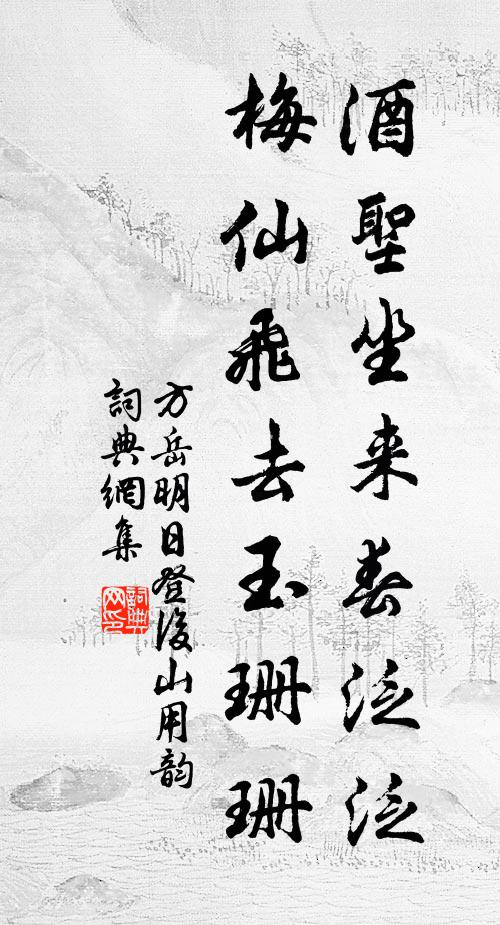 酒聖坐来春泛泛
梅仙飛去玉珊珊
方岳明日登後山用韵
詞典網集
詞典网印